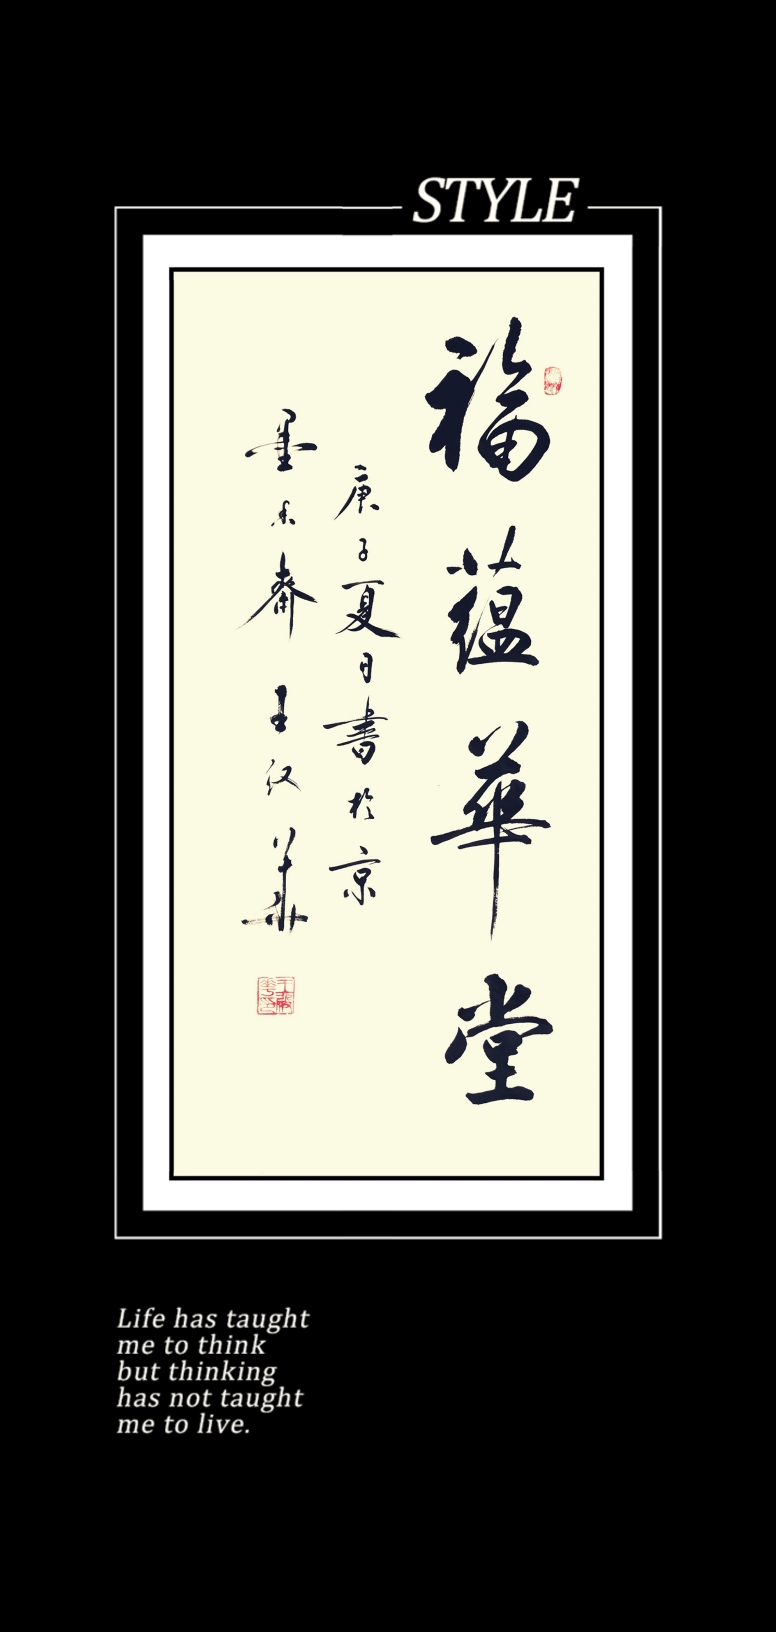 STYLE
福蕴華堂
庚子夏日書於京
墨香齋王汉華
Life has taught
me to think
but thinking
has not taught
me to live.